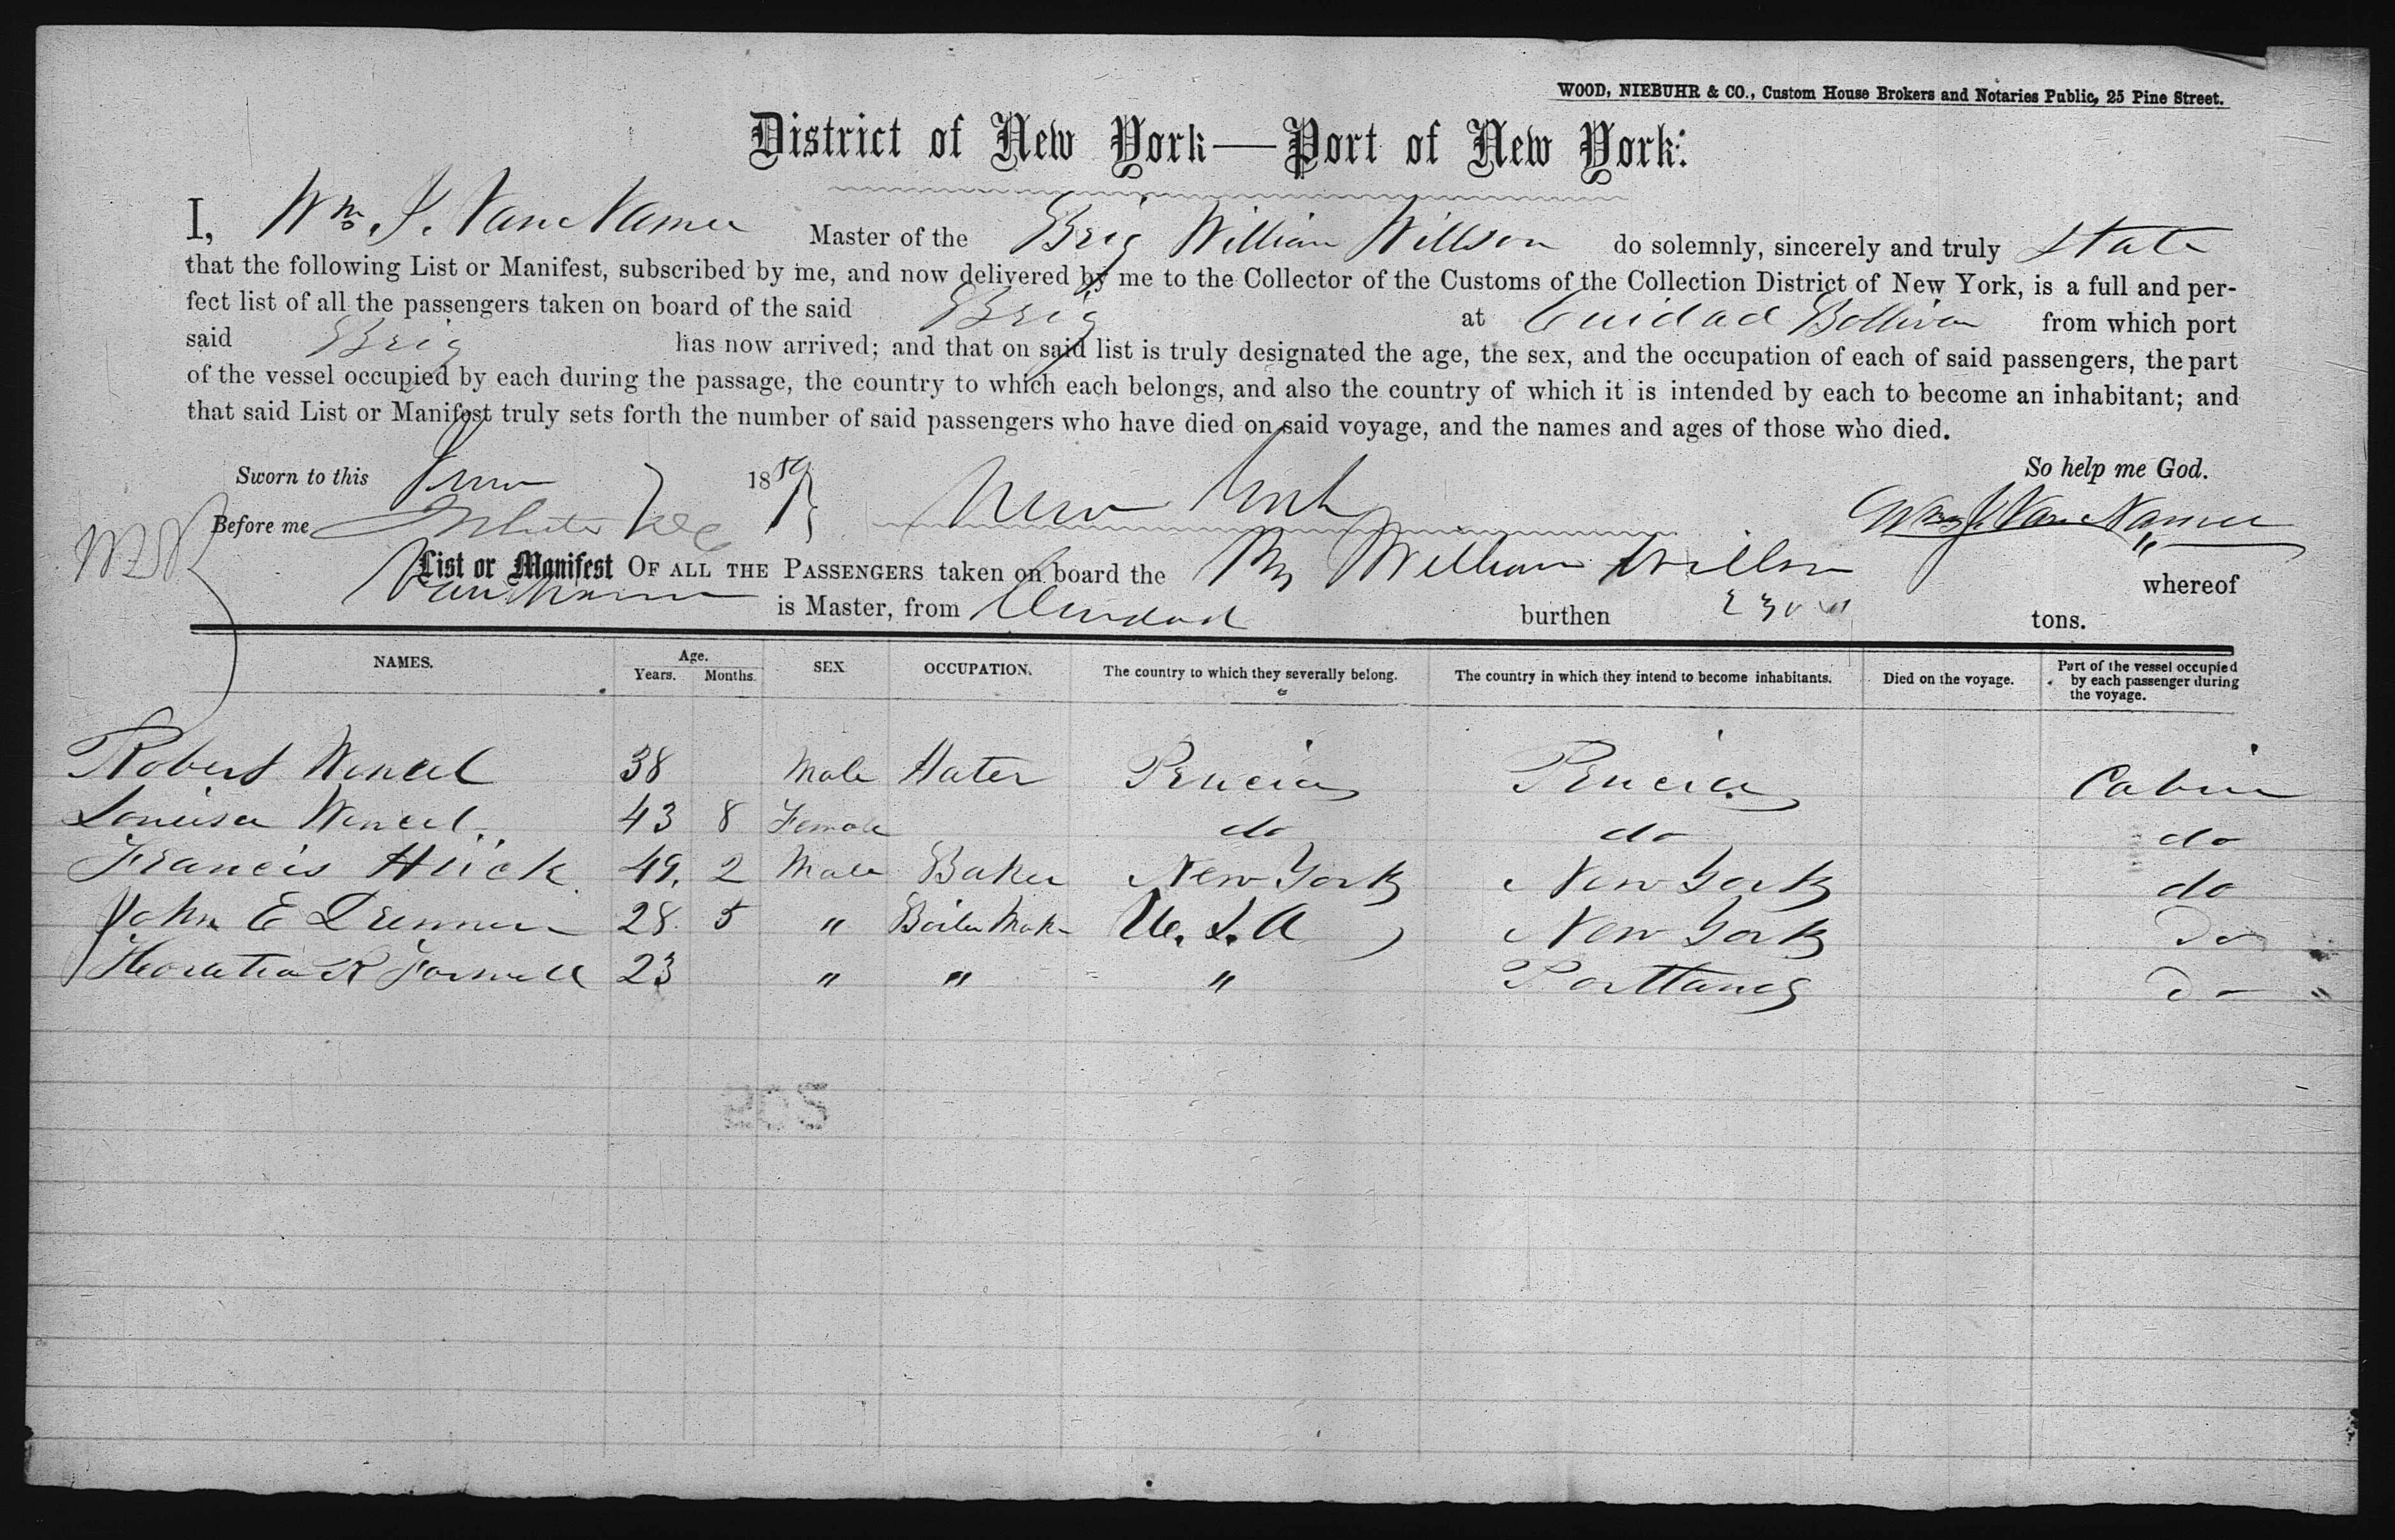 WOOD, NIEBUHR & CO., Custom House Brokers and Notaries Public, 25 Pine Street.
District of New York—Port of New York:
I, Wm. J. Van Namee Master of the Brig William Willson do solemnly, sincerely and truly state
that the following List or Manifest, subscribed by me, and now delivered by me to the Collector of the Customs of the Collection District of New York, is a full and per-
fect list of all the passengers taken on board of the said Brig at Cuidad Bollivar from which port
said Brig has now arrived; and that on said list is truly designated the age, the sex, and the occupation of each of said passengers, the part
of the vessel occupied by each during the passage, the country to which each belongs, and also the country of which it is intended by each to become an inhabitant; and
that said List or Manifest truly sets forth the number of said passengers who have died on said voyage, and the names and ages of those who died.
Sworn to this 18 New York So help me God.
Before me Wm J. Van Namee
List or Manifest OF ALL THE PASSENGERS taken on board the William Willson whereof
is Master, from Cuidad burthen 230 tons.
NAMES. Age. Years. Months. SEX OCCUPATION. The country to which they severally belong. The country in which they intend to become inhabitants. Died on the voyage. Part of the vessel occupied by each passenger during the voyage.
Robert Wencel 38 Male Hater Prucia Prucia Cabin
Louisa Wencel. 43 8 Female do do do
Francis Hück 49. 2 Male Baker New York New York do
John E 28 5 " Boiler Mak U. S. A New York Do
Horatio R 23 " " " Portland Do